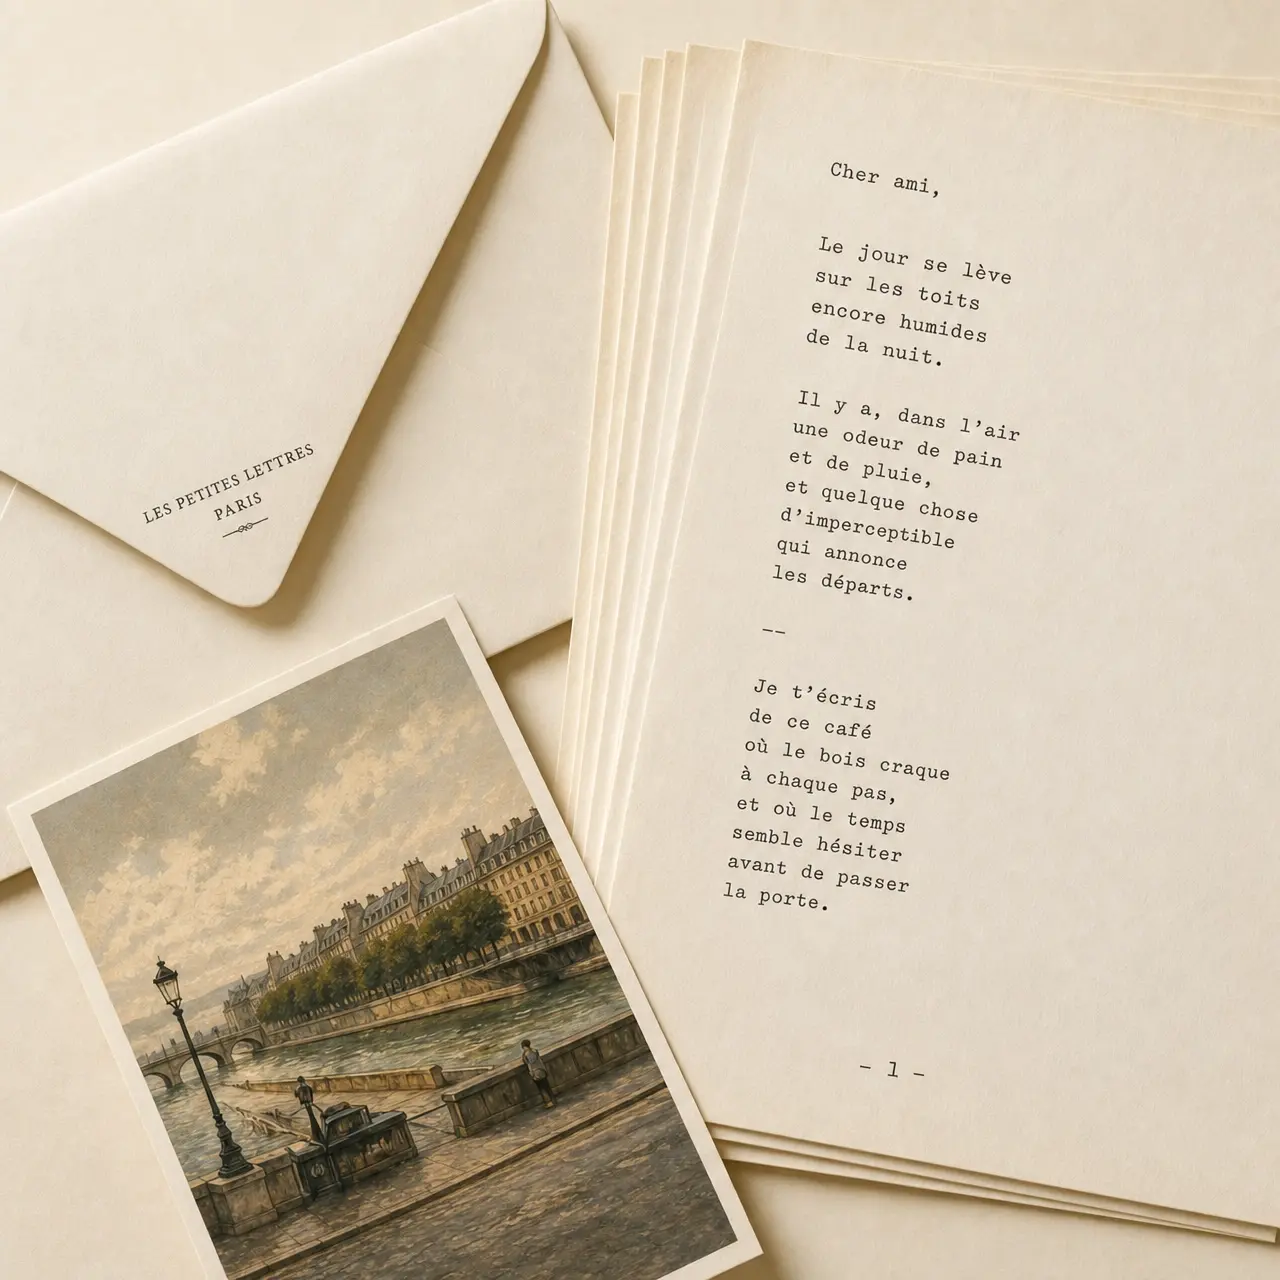 LES PETITES LETTRES
PARIS
Cher ami,
Le jour se lève
sur les toits
encore humides
de la nuit.
Il y a, dans l’air
une odeur de pain
et de pluie,
et quelque chose
d’imperceptible
qui annonce
les départs.
--
Je t’écris
de ce café
où le bois craque
à chaque pas,
et où le temps
semble hésiter
avant de passer
la porte.
- 1 -